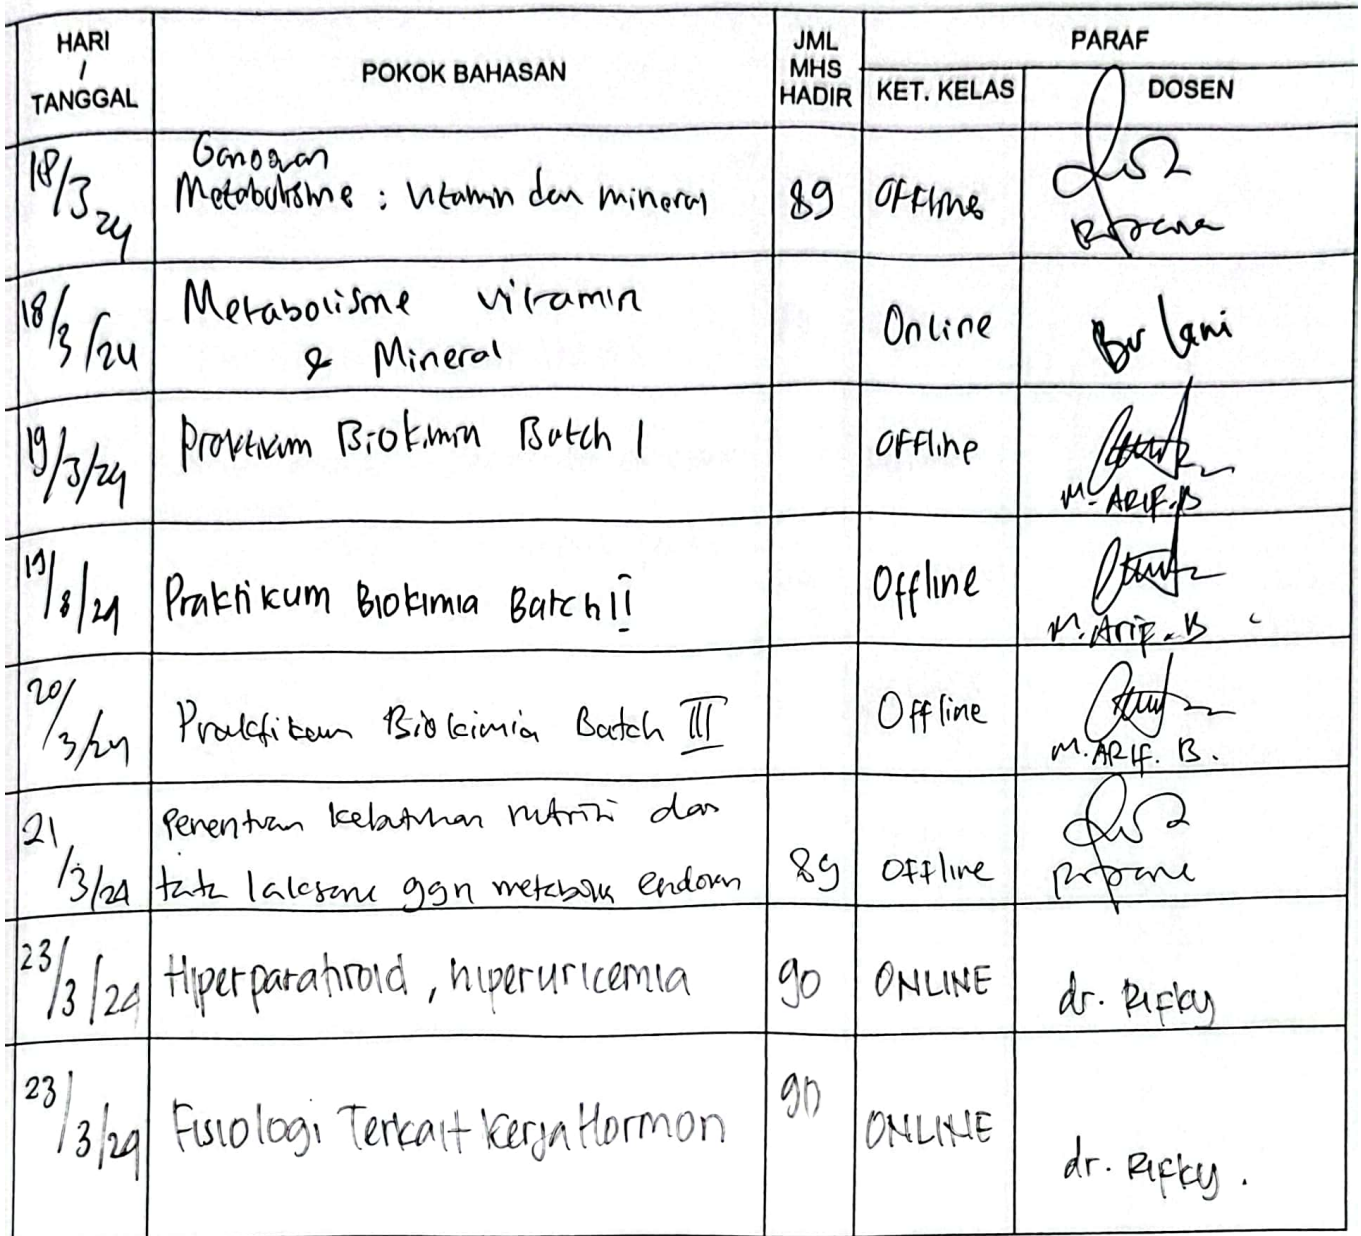 HARI / TANGGAL
POKOK BAHASAN
JML MHS HADIR
PARAF
KET. KELAS
DOSEN
18/3 24
Metabolisme : Vitamin dan mineral
89
Offline
18/3/24
Metabolisme vitamin
& Mineral
Online
Bu Lani
19/3/24
Praktikum Biokimia Batch I
Offline
M. ARIF. B
19/3/24
Praktikum Biokimia Batch II
Offline
M. Arif. B
20/3/24
Praktikum Biokimia Batch III
Offline
M. ARIF. B.
21/3/24
Penentuan kebutuhan nutrisi dan
tata laksana ggn metabolik endokrin
89
Offline
23/3/24
Hiperparatiroid, hiperuricemia
90
ONLINE
dr. Rifky
23/3/24
Fisiologi Terkait Kerja Hormon
90
ONLINE
dr. Rifky.